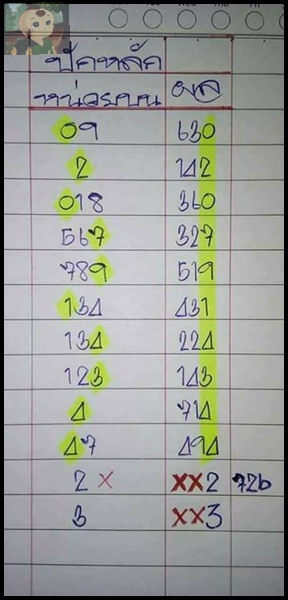 ปักหลัก
หน่วยบน ผล
09 630
2 142
018 360
567 327
789 519
134 431
134 224
123 143
4 714
47 494
2 × ××2 726
3 ××3